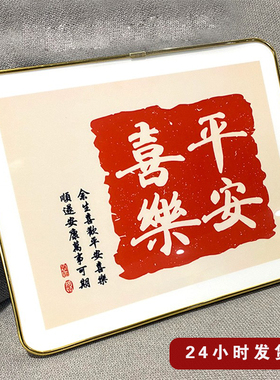 平安
喜樂
余生喜歡平安喜樂
順遂安康萬事可期
24小时发货